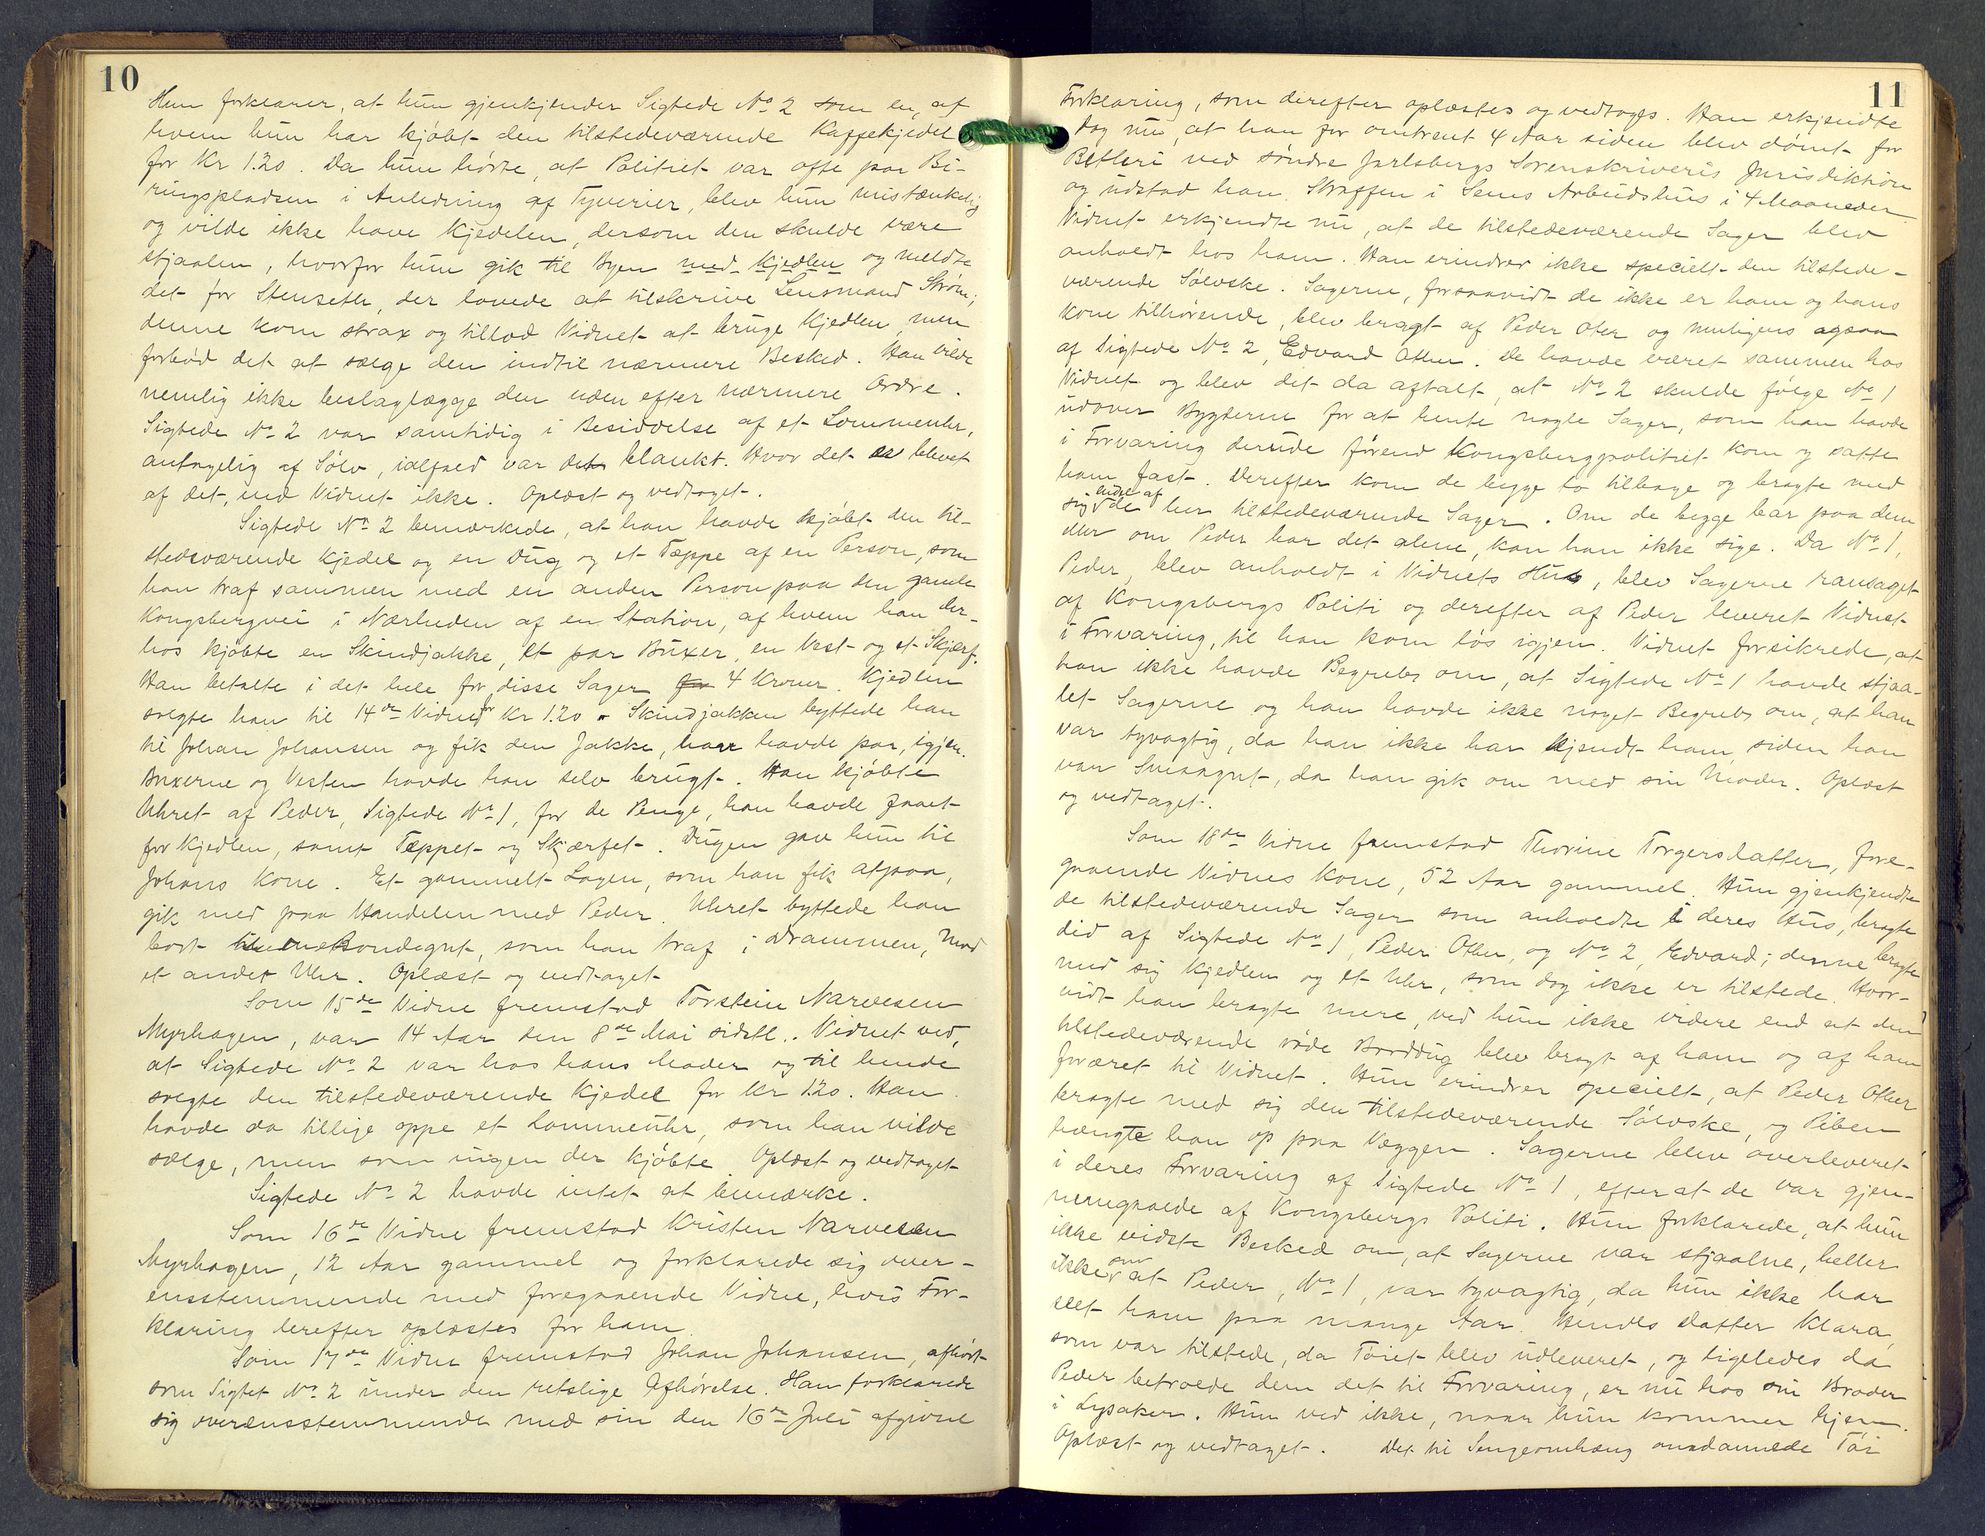 10
Hun forklarer, at hun gjenkjender Sigtede No 2 som en, af
hvem hun har kjøbt den tilstedeværende Kaffekjedel
for Kr 1.20. Da hun hørte, at Politiet var ofte paa Bi-
ringspladsen i Anledning af Tyverier, blev hun mistænkelig
og vilde ikke have Kjedelen, dersom den skulde være
stjaalen, hvorfor hun gik til Byen med Kjedlen og meldte
det for Stenseth, der lovede at tilskrive Lensmand Strøm;
denne kom strax og tillod Vidnet at bruge Kjedlen, men
forbød det at sælge den indtil nærmere Besked. Han vilde
nemlig ikke beslaglægge den uden efter nærmere Ordre.
Sigtede No 2 var samtidig i Besiddelse af et Lommeuhr,
antagelig af Sølv, ialfald var det blankt. Hvor det er blevet
af det, ved Vidnet ikke. Oplæst og vedtaget.
Sigtede No 2 bemærkede, at han havde kjøbt den til-
stedsværende Kjedel og en Dug og et Tæppe af en Person, som
han traf sammen med en anden Person paa den gamle
Kongsbergvei i Nærheden af en Station, af hvem han der-
hos kjøbte en Skindjakke, et par Buxer, en Vest og et Skjærf.
Han betalte i det hele for disse Sager for 4 Kroner. Kjedlen
solgte han til 14de Vidne for Kr 1.20. Skindjakken byttede han
til Johan Johansen og fik den Jakke, han havde paa, igjen.
Buxerne og Vesten havde han selv brugt. Han kjøbte
Uhret af Peder, Sigtede No 1, for de Penge, han havde faaet
for Kjedlen, samt Tæppet og Skjærfet. Dugen gav han til
Johans Kone. Et gammelt Lagen, som han fik afpaa,
gik med paa Handelen med Peder. Uhret byttede han
bort til en Bondegut, som han traf i Drammen, mod
et andet Uhr. Oplæst og vedtaget
Som 15de Vidne fremstod Torstein Narvesen
Myrhagen, var 14 Aar den 8de Mai sidstl.. Vidnet ved,
at Sigtede No 2 var hos hans Moder og til hende
solgte den tilstedeværende Kjedel for Kr 1.20. Han
havde da tillige oppe et Lommeuhr, som han vilde
sælge, men som ingen der kjøbte. Oplæst og vedtaget
Sigtede No 2 havde intet at bemærke.
Som 16de Vidne fremstod Kristen Narvesen
Myrhagen, 12 Aar gammel og forklarede sig over-
ensstemmende med foregaaende Vidne, hvis For-
klaring derefter oplæstes for ham.
Som 17de Vidne fremstod Johan Johansen, afhørt
som Sigtet No 2 under den retslige Afhørelse. Han forklarede
sig overensstemmende med sin den 16de Juli afgivne
11
Forklaring, som derefter oplæstes og vedtoges. Han erkjendte
dog nu, at han for omtrent 4 Aar siden blev dømt for
Betleri ved søndre Jarlsbergs Sorenskriveris Jurisdiktion
og udstod han Straffen i Sems Arbeidshus i 4 Maaneder.
Vidnet erkjendte nu, at de tilstedeværende Sager blev
anholdt hos ham. Han erindrer ikke specielt den tilstede-
værende Sølvske. Sagerne, forsaavidt de ikke er ham og hans
Kone tilhørende, blev bragt af Peder Oter og muligens ogsaa
af Sigtede No 2, Edvard Otter. De havde været sammen hos
Vidnet og blev det da aftalt, at No 2 skulde følge No 1
udover Bygderne for at hente nogle Sager, som han havde
i Forvaring derude førend Kongsbergpolitiet kom og satte
ham fast. Derefter kom de begge to tilbage og bragte med
sig endel af de her tilstedeværende Sager. Om de begge bar paa dem
eller om Peder bar det alene, kan han ikke sige. Da No 1,
Peder, blev anholdt i Vidnets Hus, blev Sagerne ransaget
af Kongsbergs Politi og derefter af Peder leveret Vidnet
i Forvaring, til han kom løs igjen. Vidnet forsikrede, at
han ikke havde Begreb om, at Sigtede No 1 havde stjaa-
let Sagerne og han havde ikke noget Begreb om, at han
var tyvagtig, da han ikke har kjendt ham, siden han
var Smaagut, da han gik om med sin Moder. Oplæst
og vedtaget.
Som 18de Vidne fremstod Thorine Torgersdatter, fore-
gaaende Vidnes Kone, 52 Aar gammel. Hun gjenkjendte
de tilstedeværende Sager som anholdte i deres Hus, bragte
did af Sigtede No 1, Peder Otter, og No 2, Edvard; denne bragte
med sig Kjedlen og et Uhr, som dog ikke er tilstede. Hvor-
vidt han bragte mere, ved hun ikke videre end at den
tilstedeværende røde Borddug blev bragt af ham og af ham
foræret til Vidnet. Hun erindrer specielt, at Peder Otter
bragte med sig den tilstedeværende Sølvske, og Piben
hængte han op paa Væggen. Sagerne blev overleveret
i deres Forvaring af Sigtede No 1, efter at de var gjen-
nemgaaede af Kongsbergs Politi. Hun forklarede, at hun
ikke vidste Besked om, at Sagerne var stjaalne, heller
ikke om at Peder, No 1, var tyvagtig, da hun ikke har
seet ham paa mange Aar. Hendes Datter Klara,
som var tilstede, da Tøiet blev udleveret, og ligeledes da
Peder betroede dem det til Forvaring, er nu hos sin Broder
i Lysaker. Hun ved ikke, naar hun kommer hjem.
Oplæst og vedtaget. Det til Sengeomhæng omdannede Tøi